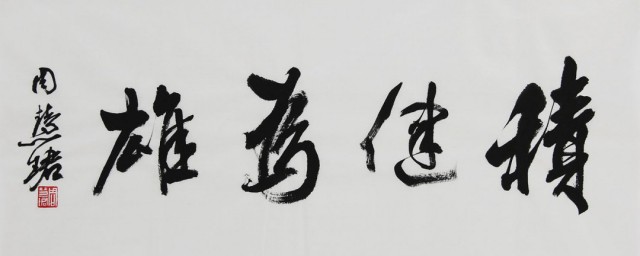 積健為雄
周慧珺